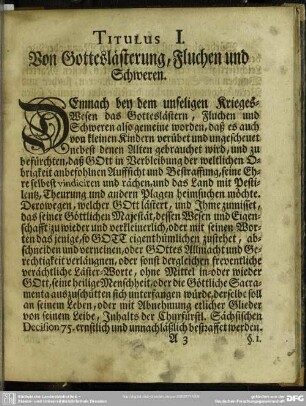 TITULUS I.
Von Gotteslästerung, Fluchen und
Schweren.
DEmnach bey dem unseligen Krieges-
Wesen das Gotteslästern, Fluchen und
Schweren also gemeine worden, daß es auch
von kleinen Kindern verübet und ungescheuet
nebest denen Alten gebrauchet wird, und zu
befürchten, daß GOtt in Verbleibung der weltlichen O-
brigkeit anbefohlnen Auffsicht und Bestraffung, seine Ehre
selbest vindiciren und rächen, und das Land mit Pesti-
lentz, Theurung und andern Plagen heimsuchen möchte.
Derowegen, welcher GOtt lästert, und Ihme zumisset,
das seiner Göttlichen Majestät, dessen Wesen und Eigen-
schafft zu wieder und verkleinerlich, oder mit seinen Wor-
ten das jenige, so GOTT eigenthümlichen zustehet, ab-
schneiden und verneinen, oder GOttes Allmacht und Ge-
rechtigkeit verläugnen, oder sonst dergleichen freventliche
verächtliche Läster-Worte, ohne Mittel in- oder wieder
GOtt, seine heilige Menschheit, oder die Göttliche Sacra-
menta auszuschütten sich unterfangen würde, derselbe soll
an seinem Leben, oder mit Abnehmung etlicher Glieder
von seinem Leibe, Inhalts der Churfürstl. Sächsischen
Decision 75. ernstlich und unnachläßlich bestraffet werden.
A 3 §. 1.